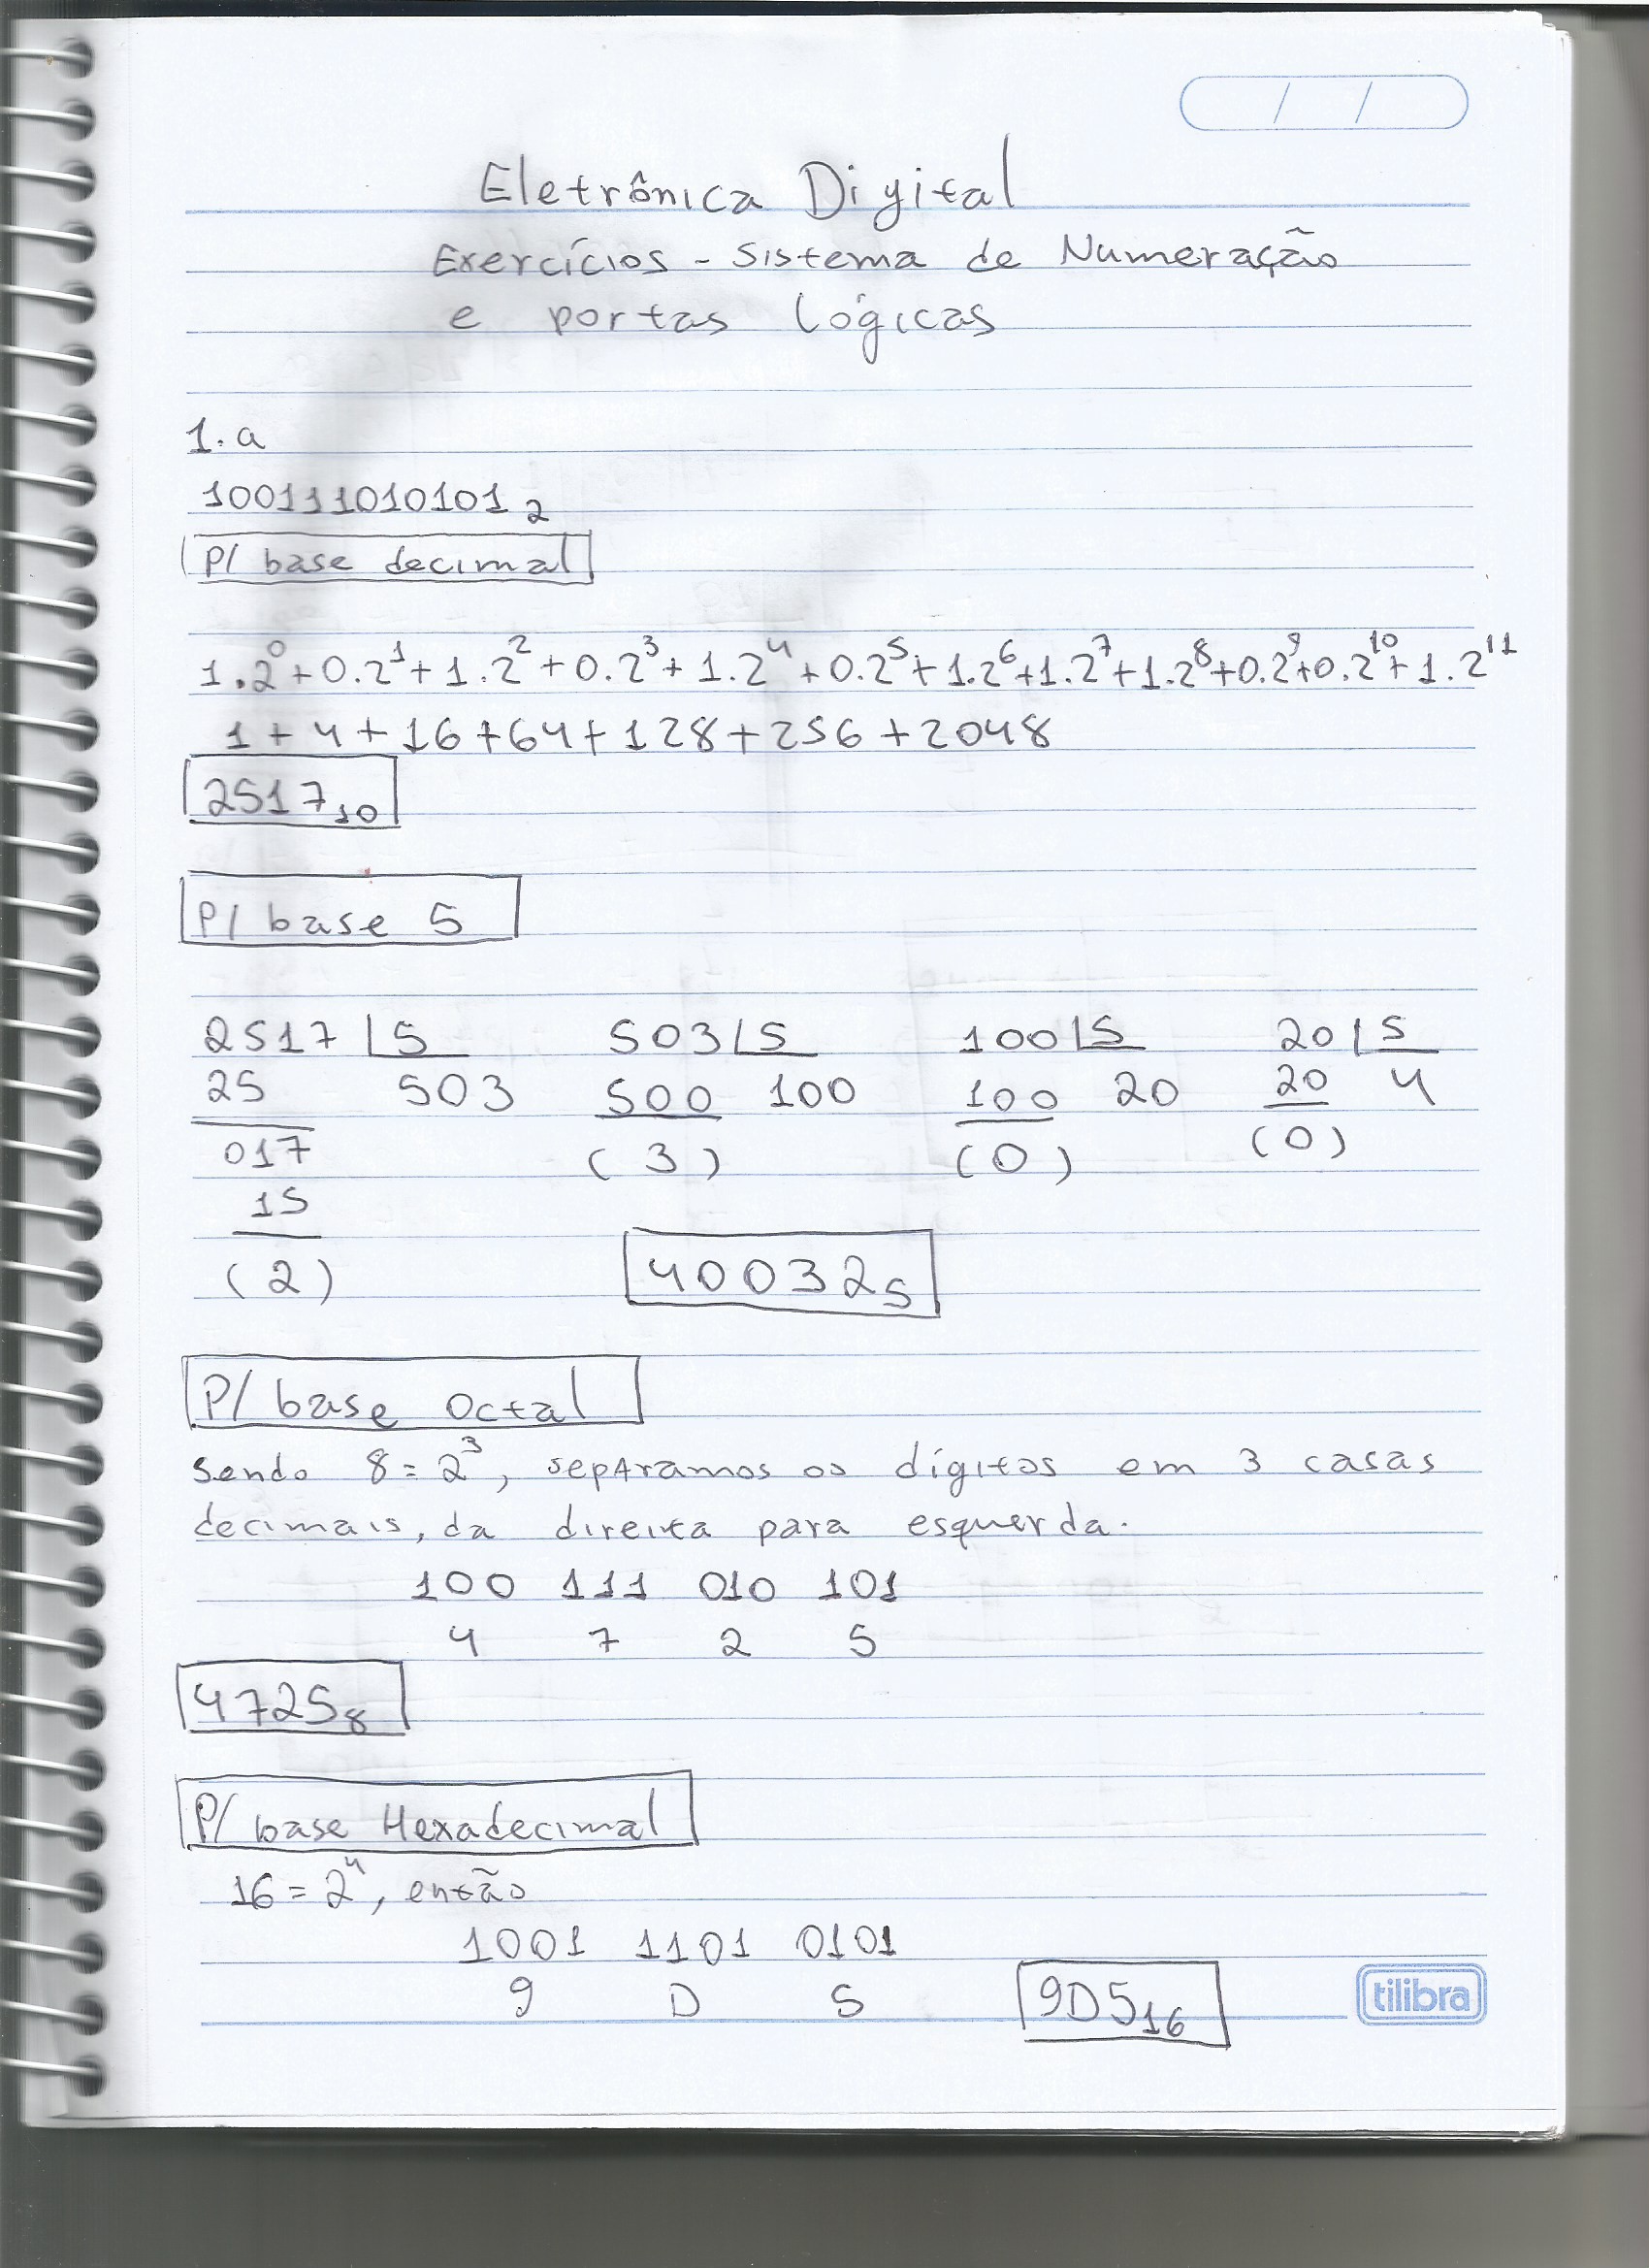 Eletrônica Digital
Exercícios - Sistema de Numeração
e portas lógicas
1.a
100111010101₂
P/ base decimal
1.2⁰+0.2¹+1.2²+0.2³+1.2⁴+0.2⁵+1.2⁶+1.2⁷+1.2⁸+0.2⁹+0.2¹⁰+1.2¹¹
1+4+16+64+128+256+2048
2517₁₀
P/ base 5
2517 |5 503|5 100|5 20|5
25 503 500 100 100 20 20 4
017 (3) (0) (0)
15
(2) 40032₅
P/ base Octal
Sendo 8=2³, separamos os dígitos em 3 casas
decimais, da direita para esquerda.
100 111 010 101
4 7 2 5
4725₈
P/ base Hexadecimal
16=2⁴, então
1001 1101 0101
9 D 5 9D5₁₆
tilibra